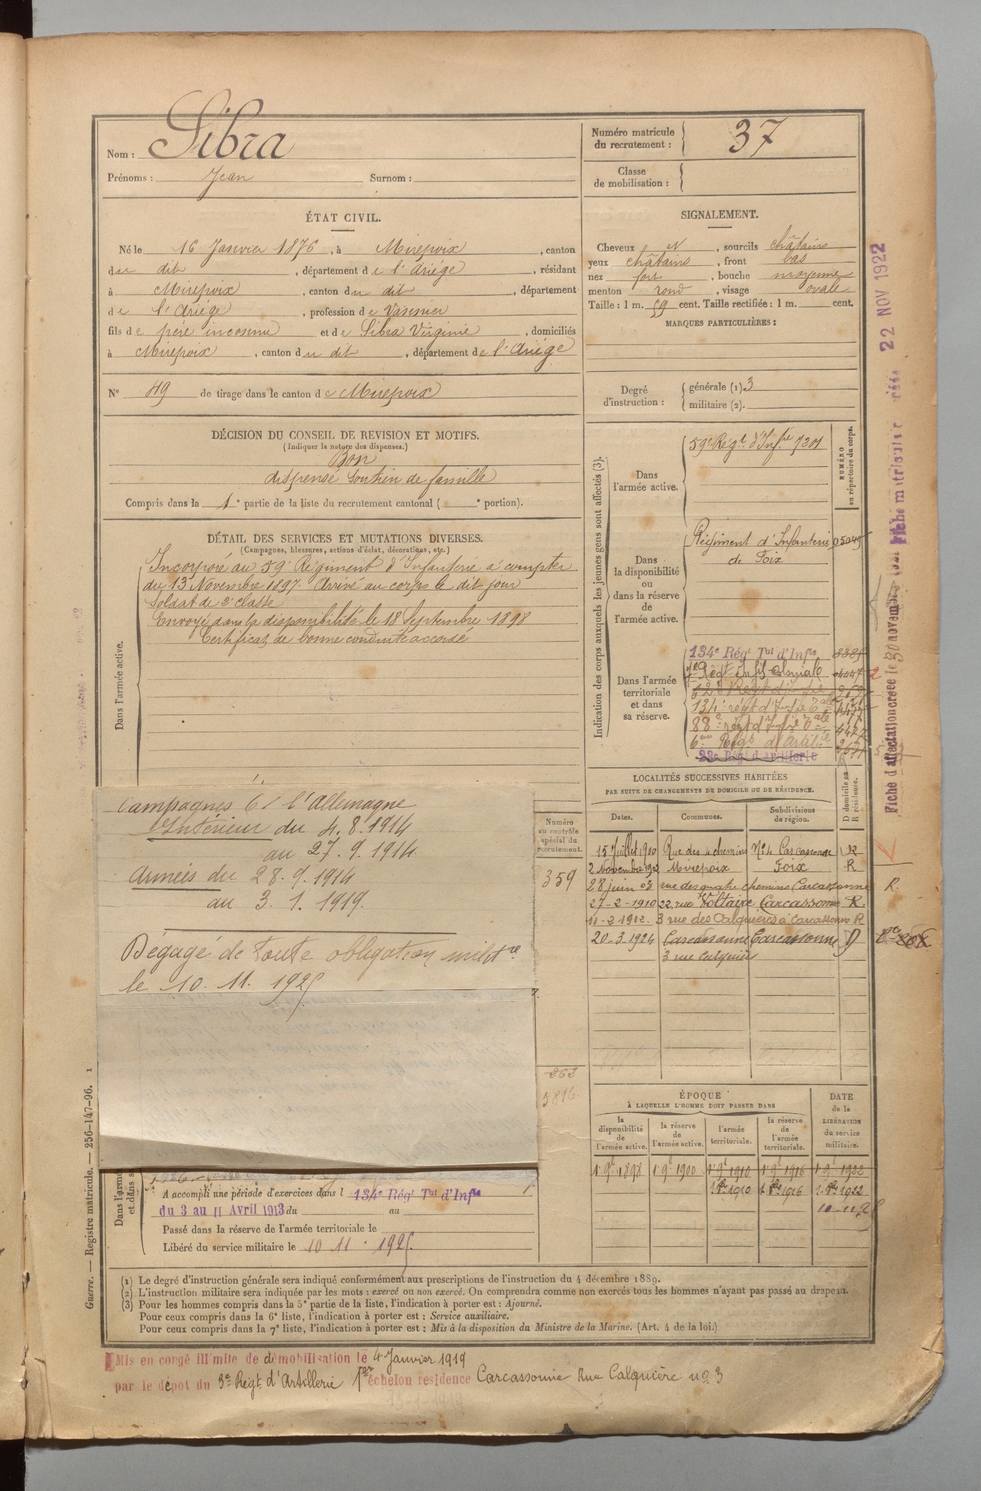 Nom : Sibra
Prénoms : Jean Surnom :
Numéro matricule du recrutement : 37
Classe de mobilisation :
ÉTAT CIVIL.
Né le 16 Janvier 1876, à Mirepoix, canton
du dit, département de l'Ariège, résidant
à Mirepoix, canton du dit, département
de l'Ariège, profession de Vasinier
fils de père inconnu et de Sibra Virginie, domiciliés
à Mirepoix, canton du dit, département de l'Ariège
N° 49 de tirage dans le canton de Mirepoix
SIGNALEMENT.
Cheveux et N, sourcils châtains
yeux châtains, front bas
nez fort, bouche moyenne
menton rond, visage ovale
Taille : 1 m. 59 cent. Taille rectifiée : 1 m. cent.
MARQUES PARTICULIÈRES :
Degré d'instruction : générale (1). 3
militaire (2).
DÉCISION DU CONSEIL DE REVISION ET MOTIFS.
(Indiquer la nature des dispenses.)
Bon
dispensé soutien de famille
Compris dans la 1e partie de la liste du recrutement cantonal ( e portion).
DÉTAIL DES SERVICES ET MUTATIONS DIVERSES.
(Campagnes, blessures, actions d'éclat, décorations, etc.)
Dans l'armée active.
Incorporé au 59e Régiment d'Infanterie à compter
du 13 Novembre 1897. Arrivé au corps le dit jour
Soldat de 2e classe
Envoyé dans la disponibilité le 18 Septembre 1898
Certificat de bonne conduite accordé
Campagnes C/ l'Allemagne
Intérieur du 4.8.1914
au 27.9.1914
Armées du 28.9.1914
au 3.1.1919.
Dégagé de toute obligation milit re
le 10.11.1925
Numéro au contrôle spécial du recrutement.
359
262
3816
A accompli une période d'exercices dans l 134e Régt Tal d'Infie
du 3 au 11 Avril 1913 du au
Passé dans la réserve de l'armée territoriale le
Libéré du service militaire le 10 11 . 1925.
Indication des corps auxquels les jeunes gens sont affectés (3).
NUMÉRO au répertoire du corps.
Dans l'armée active.
59e Régt. d'Infie 7301
Dans la disponibilité ou dans la réserve de l'armée active.
Régiment d'Infanterie
de Foix
Dans l'armée territoriale et dans sa réserve.
134e Régt Tal d'Infie
134e régt d'Infie Tale
88e régt d'Infie Tale
6e Régt d'Artillie
28e Régt d'artillerie
Fiche d'affectation créée le 30 novembre
Fiche matricule créée 22 NOV 1922
LOCALITÉS SUCCESSIVES HABITÉES
PAR SUITE DE CHANGEMENTS DE DOMICILE OU DE RÉSIDENCE.
Dates. Communes. Subdivisions de région. D domicile ou R résidence.
15 Juillet 1900 Rue des 4 chemins No 4 Carcassonne R
2 Novembre 1902 Mirepoix Foix R
28 juin 03 rue des quatre chemins Carcassonne R.
27-2-1910 22, rue Voltaire Carcassonne R.
11-2-1912. 3 rue des Calquières à Carcassonne R
20-3-1924 Carcassonne Carcassonne D
3 rue Calquière
ÉPOQUE
À LAQUELLE L'HOMME DOIT PASSER DANS
la disponibilité de l'armée active.
la réserve de l'armée active.
l'armée territoriale.
la réserve de l'armée territoriale.
DATE de la LIBÉRATION du service militaire.
1er 9e 1898 1er 9e 1900 1er 9e 1910 1er 9e 1916 1er 9e 1922
1. 8bre 1910 1. 8bre 1916 1. 8bre 1922
(1) Le degré d'instruction générale sera indiqué conformément aux prescriptions de l'instruction du 4 décembre 1889.
(2) L'instruction militaire sera indiquée par les mots : exercé ou non exercé. On comprendra comme non exercés tous les hommes n'ayant pas passé au drapeau.
(3) Pour les hommes compris dans la 5e partie de la liste, l'indication à porter est : Ajourné.
Pour ceux compris dans la 6e liste, l'indication à porter est : Service auxiliaire.
Pour ceux compris dans la 7e liste, l'indication à porter est : Mis à la disposition du Ministre de la Marine. (Art. 4 de la loi.)
Guerre. — Registre matricule. — 256-147-96. 1
Mis en congé illimité de démobilisation le 4 Janvier 1919
par le dépôt du 3e Régt d'Artillerie 1er échelon résidence Carcassonne Rue Calquière no 3